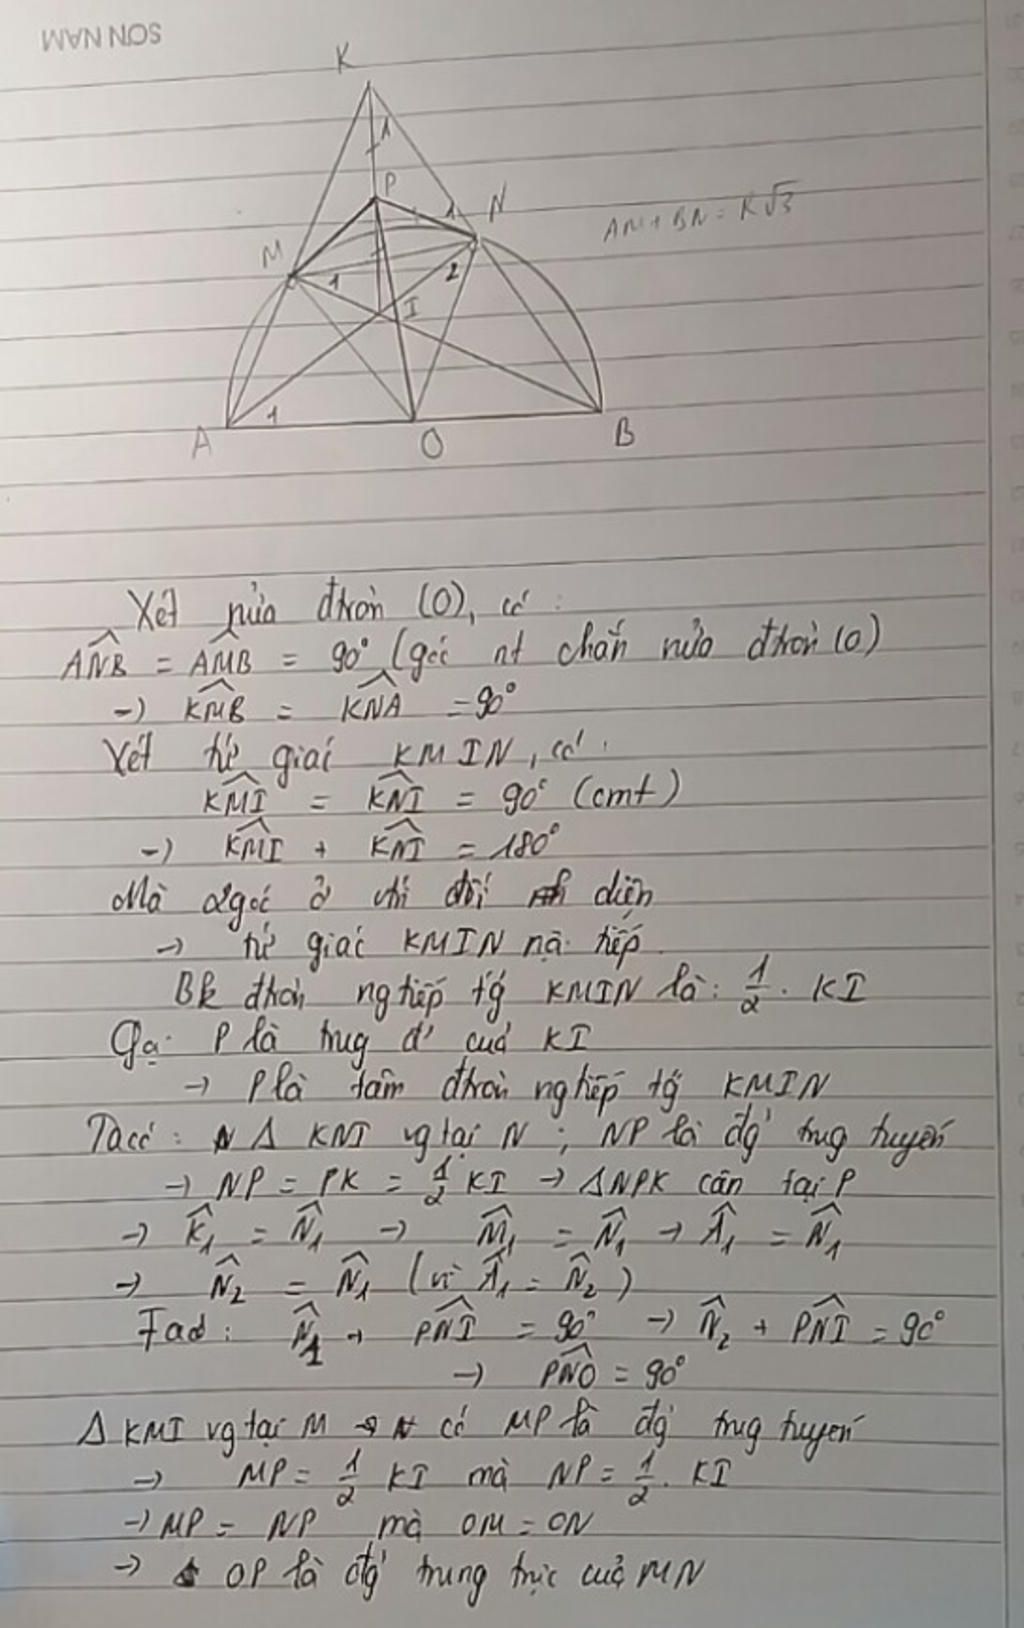 SƠN NAM
K
1
P
1
N
AM + BN = R√3
M
1
2
I
A
1
O
B
Xét nửa đtròn (O), có:
ANB = AMB = 90° (góc nt chắn nửa đtròn (O)
→ KMB = KNA = 90°
Xét tứ giác KMIN, có:
KMI = KNI = 90° (cmt)
→ KMI + KNI = 180°
Mà 2góc ở vtí đối diện
→ tứ giác KMIN nội tiếp
Bk đtròn ngtiếp tg KMIN là: 1/2 . KI
Gọi P là trug đ' của KI
→ P là tâm đtròn ngtiếp tg KMIN
Ta có: Δ KNI vg tại N; NP là đg' trug tuyến
→ NP = PK = 1/2 KI → ΔNPK cân tại P
→ K̂₁ = N̂₁ → M̂₁ = N̂₁ → Â₁ = N̂₁
→ N̂₂ = N̂₁ (vì Â₁ = N̂₂)
N̂₁ + PNI = 90° → N̂₂ + PNI = 90°
→ PNO = 90°
Δ KMI vg tại M có MP là đg' trug tuyến
→ MP = 1/2 KI mà NP = 1/2 . KI
→ MP = NP mà OM = ON
→ OP là đg' trung trực của MN